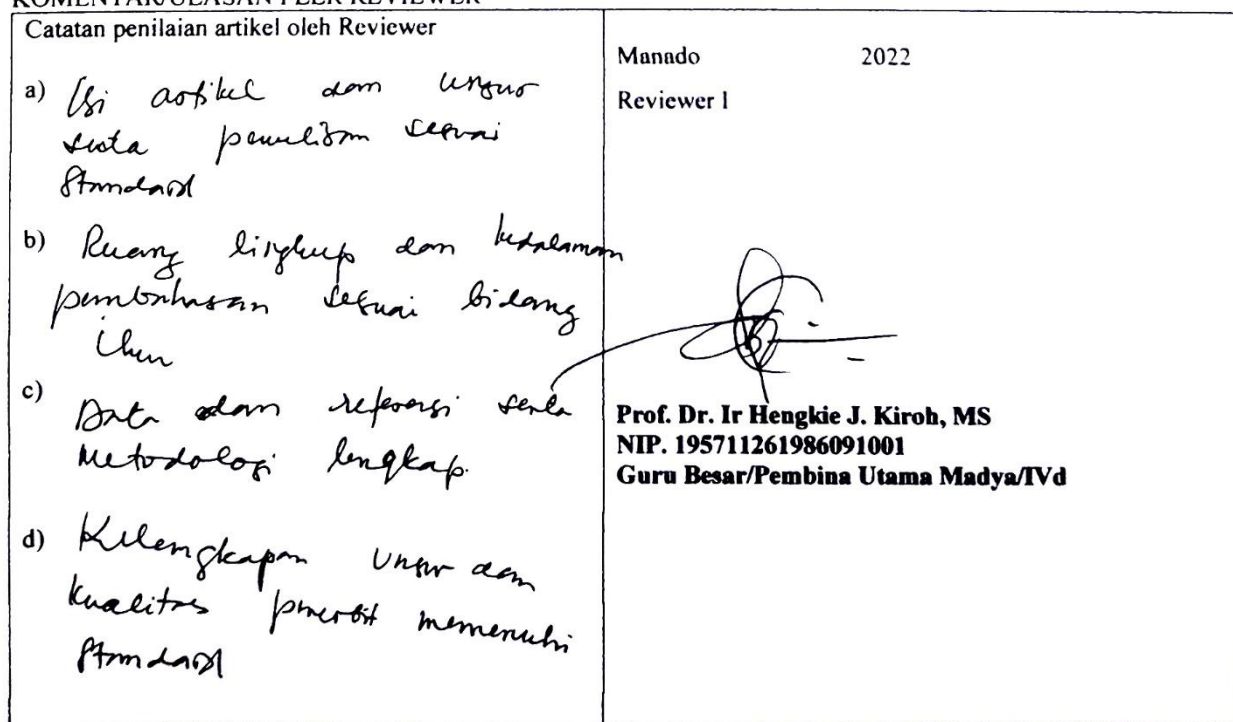 KOMENTAR/ULASAN PEER REVIEWER
Catatan penilaian artikel oleh Reviewer
a) Isi artikel dan unsur
serta penulisan sesuai
Standard
b) Ruang lingkup dan kedalaman
pembahasan sesuai bidang
ilmu
c) Data dan referensi serta
metodologi lengkap.
d) Kelengkapan unsur dan
kualitas penerbit memenuhi
Standard
Manado 2022
Reviewer 1
Prof. Dr. Ir Hengkie J. Kiroh, MS
NIP. 195711261986091001
Guru Besar/Pembina Utama Madya/IVd